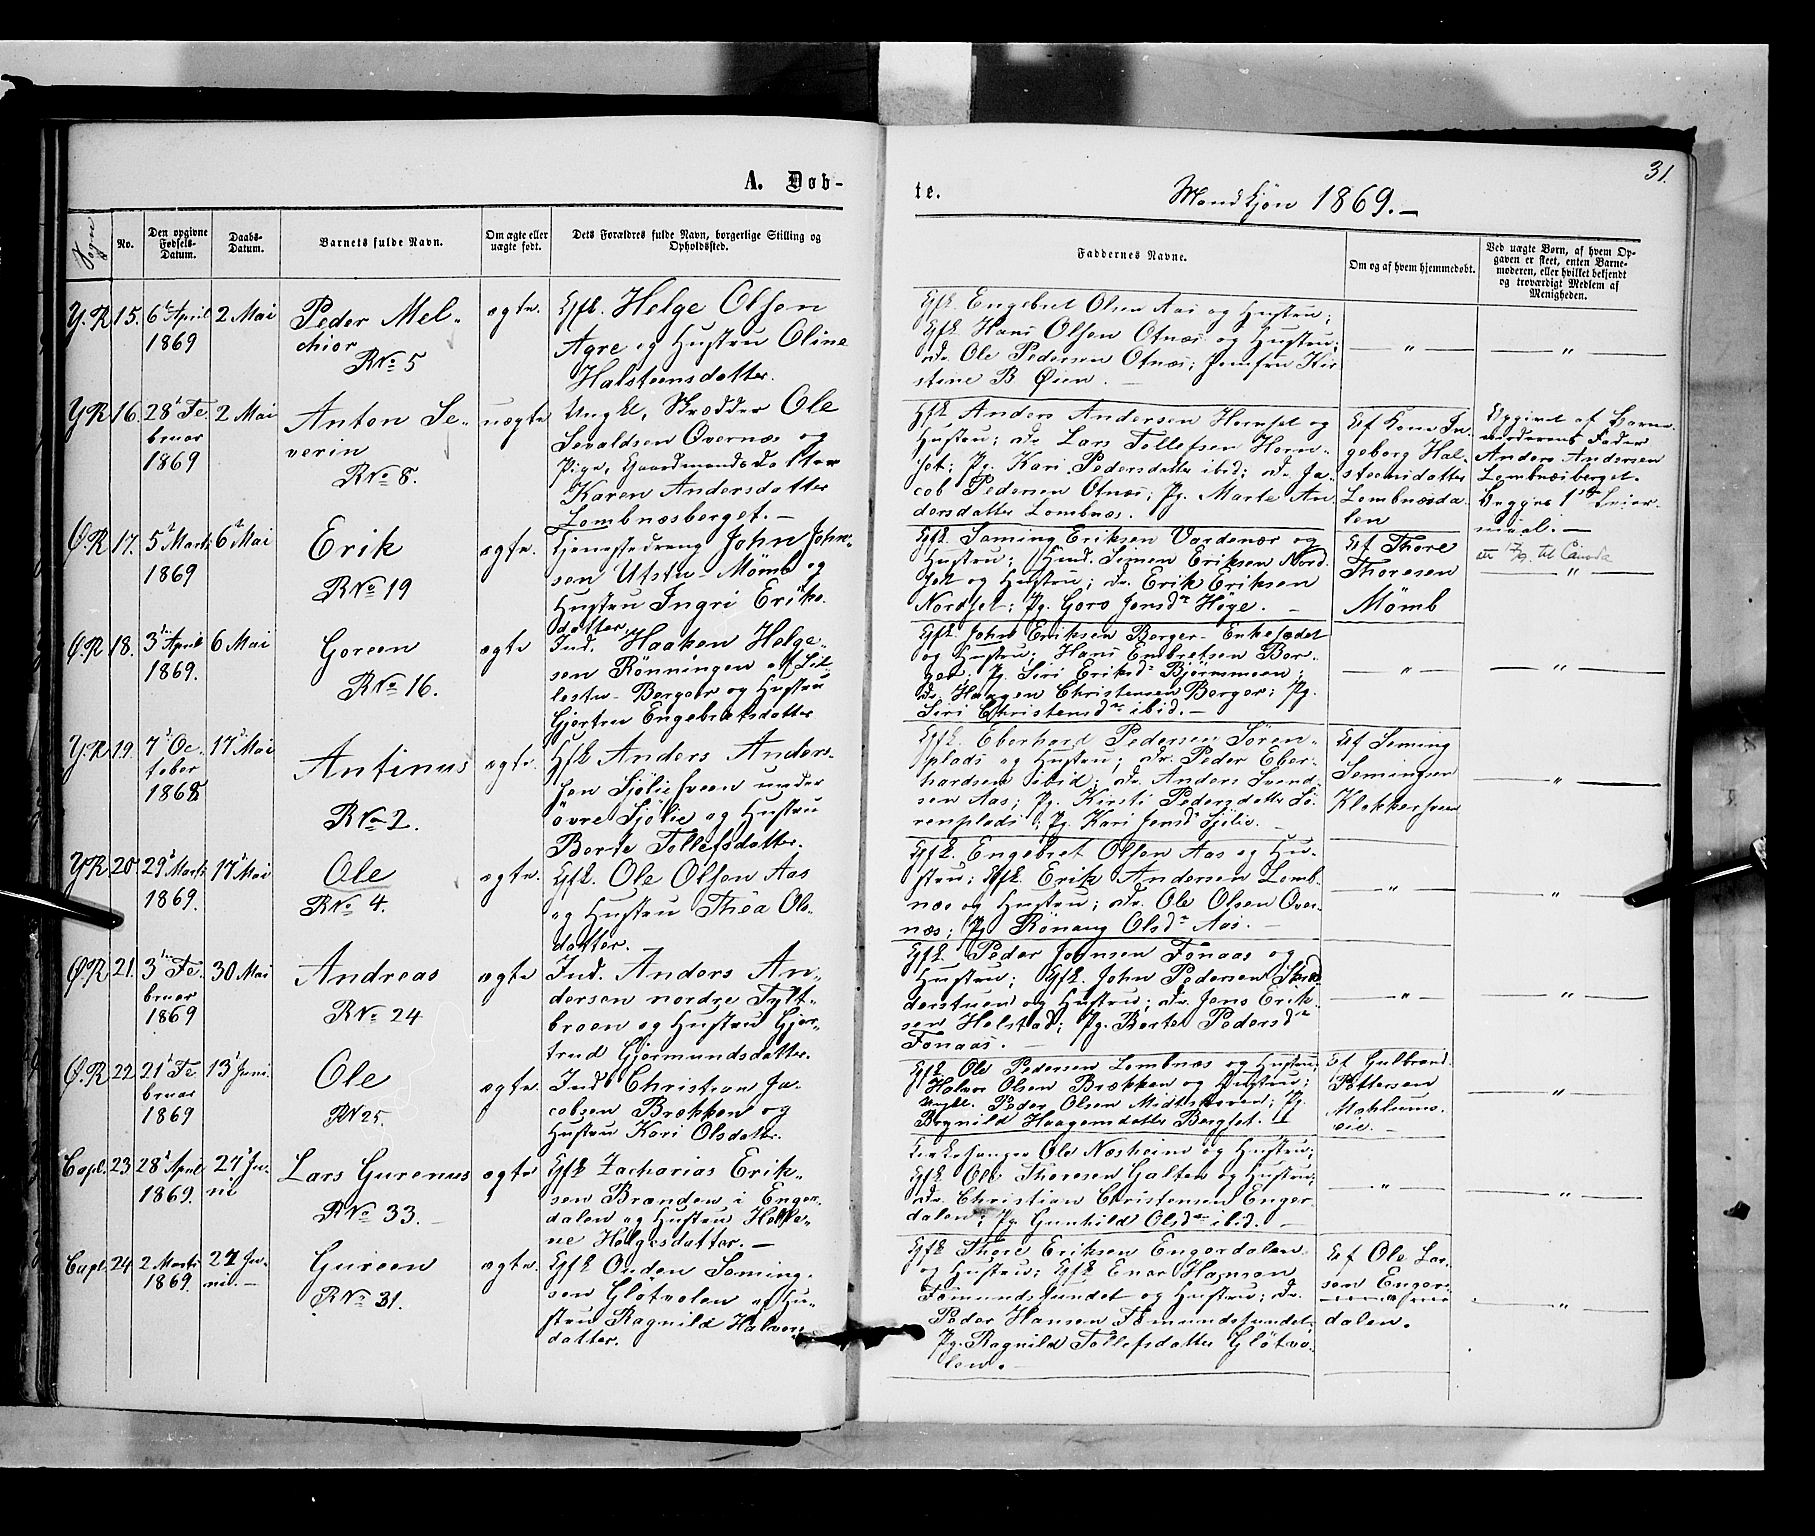 A. Døb-
te.
Mandkjøn 1869.-
31.
Sogn
No.
Den opgivne
Fødsels-
Datum.
Daabs-
Datum.
Barnets fulde Navn.
Om ægte eller
uægte født.
Dets Forældres fulde Navn, borgerlige Stilling og
Opholdssted.
Faddernes Navne.
Om og af hvem hjemmedøbt.
Ved uægte Børn, af hvem Op-
gaven er skeet, enten Barne-
moderen, eller hvilket bekjendt
og troværdigt Medlem af
Menigheden.
Y.R
15.
6te April
1869
2 Mai
Peder Mel-
chior
R No 5
ægte.
Gfk. Helge Olsen
Agre og Hustru Oline
Halsteensdatter.
Gfk. Engebret Olsen Aas og Hustru;
Gfk Hans Olsen Otnæs og Hustru;
Dr. Ole Pedersen Otnæs; Jomfru Kir
stine B Øien. -
"
"
YR
16.
28de Fe
bruar
1869
2 Mai
Anton Se-
verin
R No 8.
uægte
Ungkl, Skrædder Ole
Sevaldsen Overnæs og
Pige, Gaardmandsdatter
Karen Andersdatter
Lombnæsberget. -
Gfk Anders Andersen Hornset og
Hustru; Dr Lars Tollefsen Horn-
set; Pg. Kari Pedersdatter ibid; Dr Ja-
cob Pedersen Otnæs; Pg. Marte An
dersdatter Lombnæs.
Af Kone In-
geborg Hal-
steensdatter
Lombnæsda-
len
Opgivet af Barne-
moderens Fader
Anders Andersen
Lombnæsberget.
Begges 1ste Leier-
maal. -
til Canada
Ø.R
17.
5te Marts
1869
6te Mai
Erik
R No 19
ægte.
Tjenestedreng John John-
sen Utstu-Mømb og
Hustru Ingri Eriks-
datter.
Gfk. Seming Eriksen Vardenær og
Hustru; Ind. Simen Eriksen Nord-
set og Hustru; Dr. Erik Eriksen
Nordset; Pg. Goro Jensdr Høge. -
Af Thore
Thoresen
Mømb
"
Ø.R
18.
3die April
1869.
6 Mai
Goreen
R No 16.
ægte
Ind. Haaken Helge-
sen Rönningen af Lil
lestu-Berger og Hustru
Gjertru Engebretsdatter
Gfk. John Eriksen Berger-Enkesædet
og Hustru; Hans Embretsen Ber-
ger; Pg. Siri Eriksdr Björnmoen;
Dr. Haagen Christensen Berger; Pg.
Siri Christensdr ibid. -
"
"
YR
19.
7de Oc-
tober
1868
17de Mai
Antinus
R No 2.
ægte.
Gfk Anders Anders-
sen Sjöliesveen under
övre Sjölie og Hustru
Berte Tollefsdatter.
Gfk. Eberhard Pedersen Sören-
plads og Hustru; Dr. Peder Eber-
hardsen ibid; Dr. Anders Svend-
sen Aas; Pg. Kirsti Pedersdatter Sö-
renplads; Pg. Kari Jensdr Sjölie. -
Af Seming
Semingsen
Klokkersveen
"
YR
20
29de Marts
1869.
17de Mai
Ole
R No 4.
ægte.
Gfk. Ole Olsen Aas
og Hustru Thea Ols-
datter. -
Gfk. Engebret Olsen Aas og Hu-
stru; Gfk. Erik Andersen Lomb-
næs og Hustru; Dr. Ole Olsen Over-
næs; Pg Rönaug Olsdr Aas. -
"
"
ØR
21.
3die Fe-
bruar
1869
30 Mai
Andreas
R No 24
ægte
Ind. Anders An-
dersen nordre Fylt-
broen og Hustru Gjer-
trud Gjermundsdatter.
Gfk. Peder Jonsen Fonaas og
Hustru; Gfk. John Pedersen Skræd
derstuen og Hustru; Dr. Jens Erik-
sen Holstad; Pg. Berte Pedersdr
Fonaas. -
"
"
Ø.R
22
21de Fe
bruar
1869
13de Juni.
Ole
R No 25.
ægte.
Inds Christian Ja-
cobsen Brækken og
Hustru Kari Olsdatter.
Gfk Ole Pedersen Lombnæs og Hustru
Halvor Olsen Brækken og Hustru;
Ungkl. Peder Olsen Midtskoven; Pg.
Bergnild Haagensdatter Bergset. -
Af Gulbrand
Pettersen
Mohlums-
eie. -
"
Capl.
23
28de April
1869.
27 Ju-
ni
Lars Gurenus
R No 33.
ægte
Gfk Zacharias Erik-
sen Branden i Enger-
dalen og Hustru Helle-
ne Helgesdatter. -
Kirkesanger Ole Næsheim og Hustru;
Gfk. Ole Thoresen Galten og Hustru;
Dr. Christian Christensen Enger-
dalen; Pg. Gunhild Olsdr ibid. -
"
"
Capl.
24
2 Marts
1869.
27 Ju-
ni. -
Gureen
R No 31.
ægte.
Gfk Onden Seming-
sen Glötvolen og Hu-
stru Ragnild Halvors-
datter.
Gfk Thore Eriksen Engerdalen
og Hustru; Gfk Enar Hansen
Fæmundssundet og Hustru; Dr.
Peder Hansen Fæmundssundet
Pg. Ragnild Tollefsdatter Glötvo-
len. -
Af Ole Lar-
sen Enger-
dalen.
"